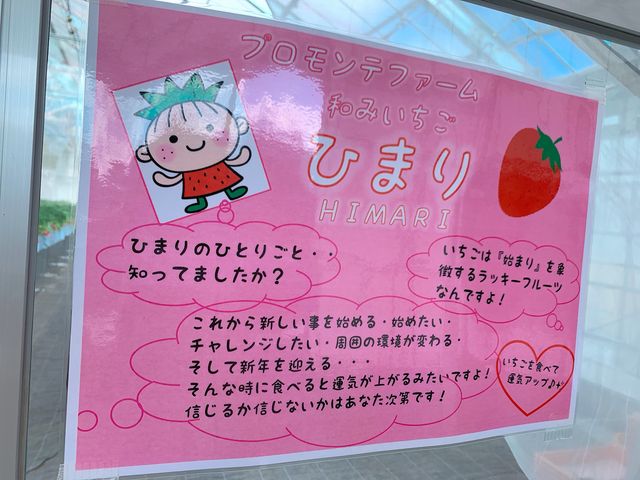 プロモンテファーム
和みいちご
ひまり
HIMARI
ひまりのひとりごと・・
知ってましたか？
いちごは『始まり』を象
徴するラッキーフルーツ
なんですよ！
これから新しい事を始める・始めたい・
チャレンジしたい・周囲の環境が変わる・
そして新年を迎える・・・
そんな時に食べると運気が上がるみたいですよ！
信じるか信じないかはあなた次第です！
いちごを食べて
運気アップ♪